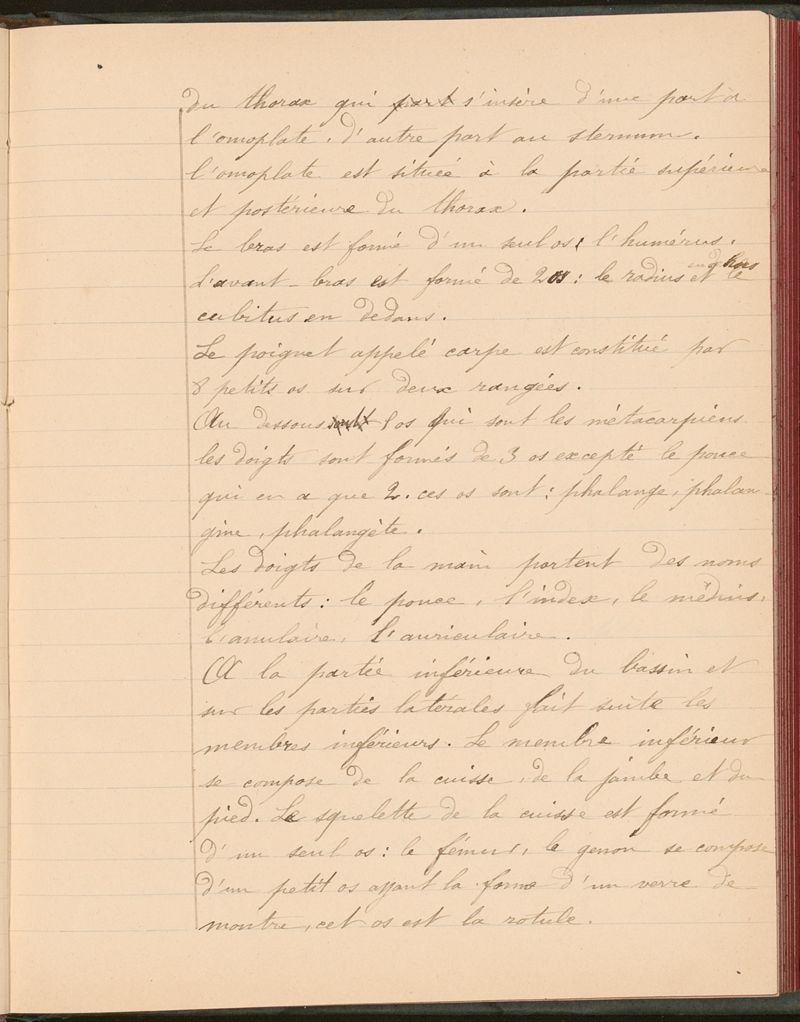 du thorax qui part s'insère d'une part à
l'omoplate, d'autre part au sternum.
l'omoplate est situéé à la partie supérieure
et postérieure du thorax.
Le bras est formé d'un seul os : l'humérus.
en dehors
L'avant-bras est formé de 2 os : le radius et le
cubitus en dedans.
Le poignet appelé carpe est constitué par
8 petits os sur deux rangées.
Au dessous sont 5 os qui sont les métacarpiens
les doigts sont formés de 3 os excepté le pouce
qui en a que 2. ces os sont : phalange, phalan-
gine, phalangète.
Les doigts de la main portent des noms
différents : le pouce, l'index, le médius,
l'anulaire, l'auriculaire.
A la partie inférieure du bassin et
sur les parties latérales fait suite les
membres inférieurs. Le membre inférieur
se compose de la cuisse, de la jambe et du
pied. Le squelette de la cuisse est formé
d'un seul os : le fémur, le genou se compose
d'un petit os ayant la forme d'un verre de
montre, cet os est la rotule.